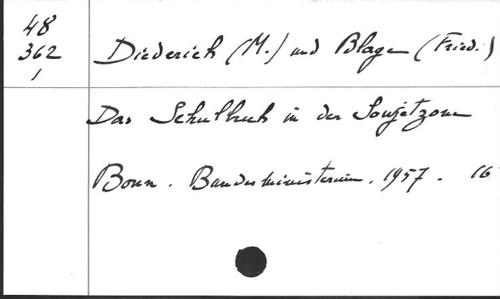 48
362
1
Diederich (M.) und Blage (Fried.)
Das Schulbuch in der Sowjetzone
Bonn. Bundesministerium. 1957. 16